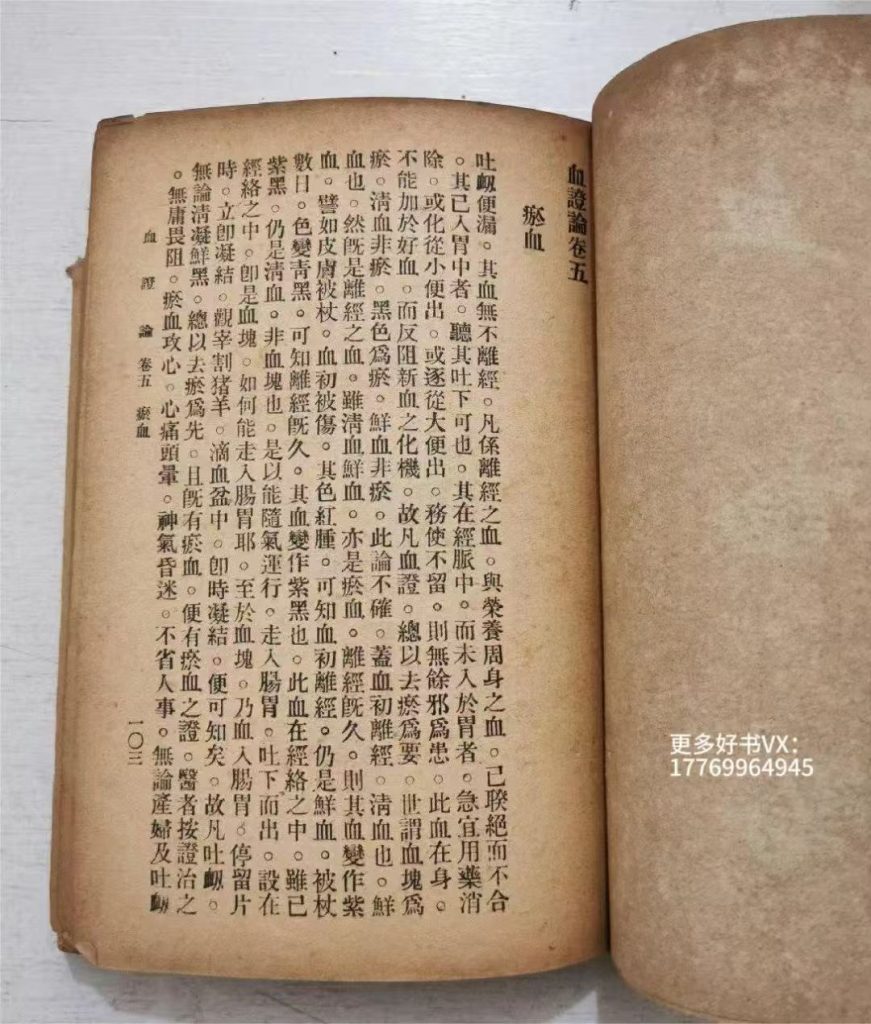 血證論卷五
瘀血
吐衂便漏。其血無不離經。凡係離經之血。與榮養周身之血。已睽絕而不合
。其已入胃中者。聽其吐下可也。其在經脈中。而未入於胃者。急宜用藥消
除。或化從小便出。或逐從大便出。務使不留。則無餘邪爲患。此血在身。
不能加於好血。而反阻新血之化機。故凡血證。總以去瘀爲要。世謂血塊爲
瘀。淸血非瘀。黑色爲瘀。鮮血非瘀。此論不確。蓋血初離經。淸血也。鮮
血也。然旣是離經之血。雖淸血鮮血。亦是瘀血。離經旣久。則其血變作紫
血。譬如皮膚被杖。血初被傷。其色紅腫。可知血初離經。仍是鮮血。被杖
數日。色變靑黑。可知離經旣久。其血變作紫黑也。此血在經絡之中。雖已
紫黑。仍是淸血。非血塊也。是以能隨氣運行。走入腸胃。吐下而出。設在
經絡之中。卽是血塊。如何能走入腸胃耶。至於血塊。乃血入腸胃。停留片
時。立卽凝結。觀宰割猪羊。滴血盆中。卽時凝結。便可知矣。故凡吐衂。
無論淸凝鮮黑。總以去瘀爲先。且旣有瘀血。便有瘀血之證。醫者按證治之
。無庸畏阻。瘀血攻心。心痛頭暈。神氣昏迷。不省人事。無論產婦及吐衂
血證論 卷五 瘀血
一〇三
更多好书VX：
17769964945